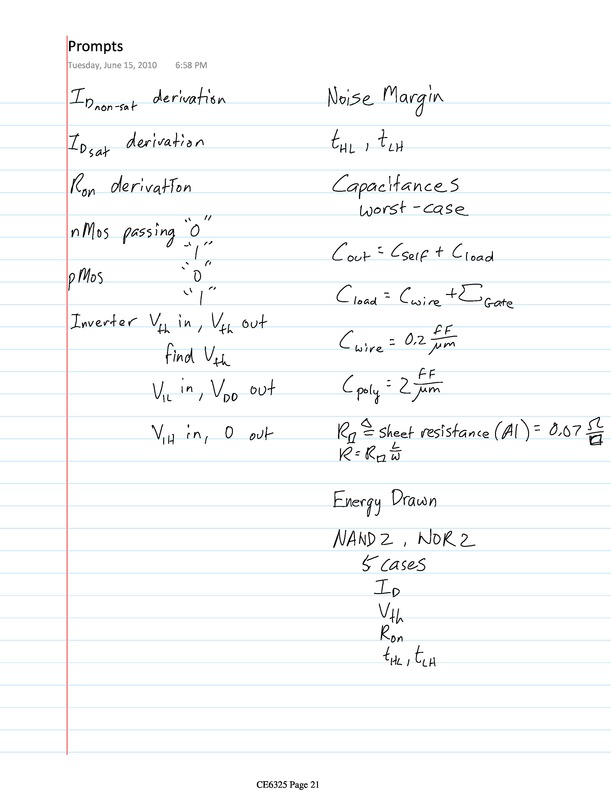 Prompts
Tuesday, June 15, 2010 6:58 PM
I_D non-sat derivation
I_D sat derivation
R_on derivation
nMos passing "0"
"1"
pMos "0"
"1"
Inverter V_th in, V_th out
find V_th
V_IL in, V_DD out
V_IH in, 0 out
Noise Margin
t_HL, t_LH
Capacitances
worst-case
C_out = C_self + C_load
C_load = C_wire + Σ_Gate
C_wire = 0.2 fF/μm
C_poly = 2 fF/μm
R_□ ≜ sheet resistance (Al) = 0.07 Ω/□
R = R_□ L/W
Energy Drawn
NAND2, NOR2
5 cases
I_D
V_th
R_on
t_HL, t_LH
CE6325 Page 21